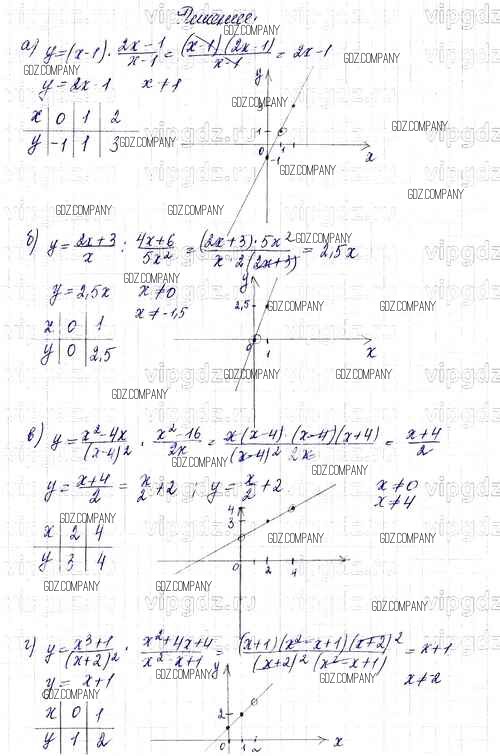 Решение.
а) y = (x-1) · (2x-1)/(x-1) = (x-1)(2x-1)/(x-1) = 2x-1
y = 2x-1 x ≠ 1
x | 0 | 1 | 2
y | -1 | 1 | 3
y 3 1 0 1 -1 x
б) y = (2x+3)/x : (4x+6)/(5x²) = (2x+3)·5x²/(x·2(2x+3)) = 2,5x
y = 2,5x x ≠ 0
x ≠ -1,5
x | 0 | 1
y | 0 | 2,5
y 2,5 0 1 x
в) y = (x²-4x)/(x-4)² · (x²-16)/(2x) = x(x-4)(x-4)(x+4)/((x-4)² 2x) = (x+4)/2
y = (x+4)/2 = x/2 + 2 ; y = x/2 + 2. x ≠ 0
x ≠ 4
x | 2 | 4
y | 3 | 4
4 3 0 2 4
г) y = (x³+1)/(x+2)² · (x²+4x+4)/(x²-x+1) = (x+1)(x²-x+1)(x+2)²/((x+2)²(x²-x+1)) = x+1
y = x+1 x ≠ -2
x | 0 | 1
y | 1 | 2
y 2 0 1 2 x
GDZ.COMPANY
vipgdz.ru